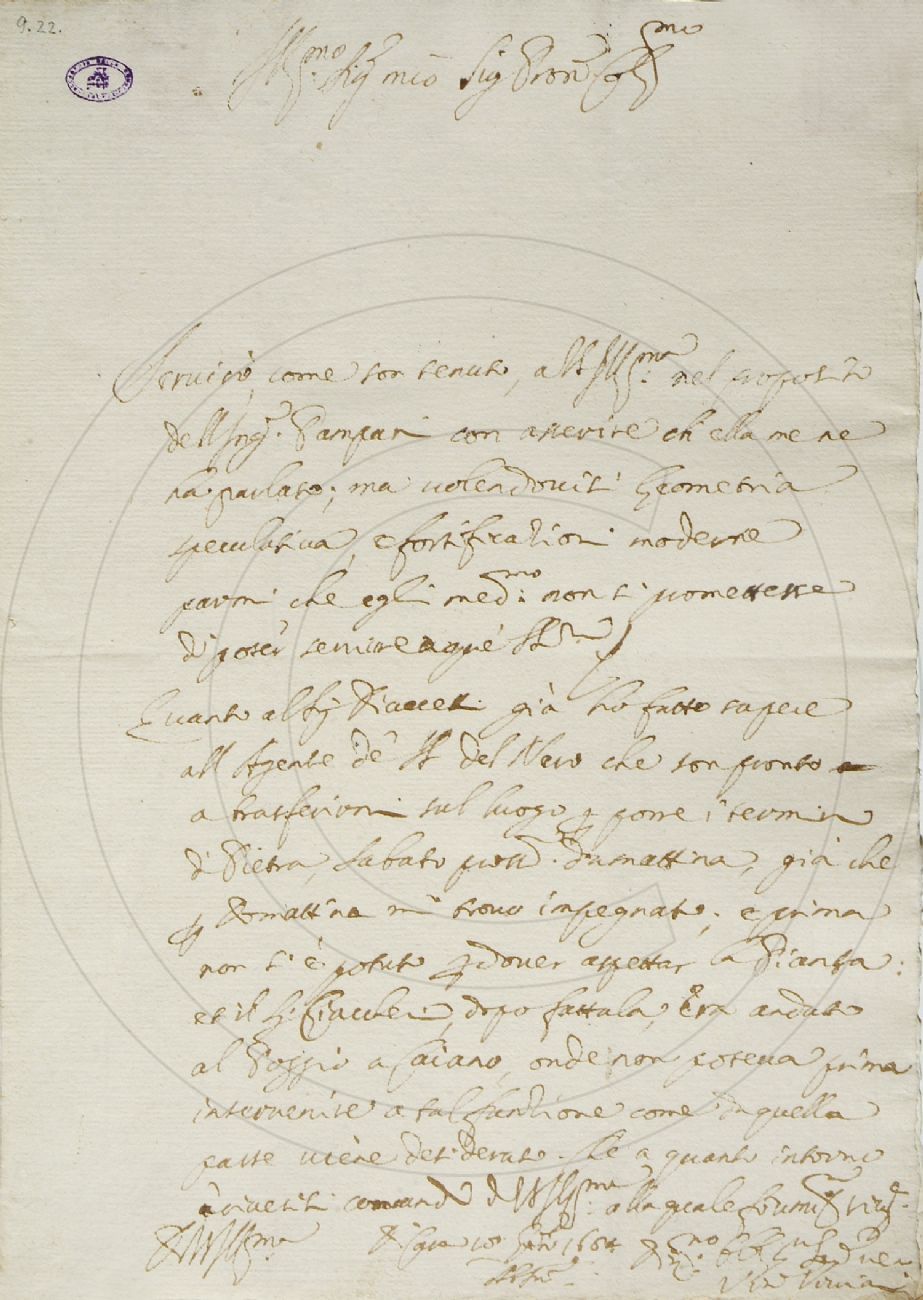 9. 22.
Ill.mo Sig.r mio Sig Pron Col.mo
Servirò, come son tenuto, a VS Ill.ma nel proposito
dell'Ing.r Pampani con asserire ch'ella me ne
ha parlato; ma volendovisi Geometria
speculativa, e fortificazioni moderne
parmi che egli med.mo non si promettesse
di poter servire a quel
Quanto al Sig già ho fatto sapere
all'Agente de' SS.ri del Nero che son pronto
a trasferirmi sul luogo p porre i termini
di Pietra, Sabato pross.o da mattina, già che
p Domattina mi trovo impegnato, e prima
non s'è potuto p dover aspettar la Pianta:
et il S. , dopo fattala, era andato
al Poggio a Caiano, onde non poteva prima
intervenire a tal funzione come da quella
parte viene desiderato. Ch'è quanto intorno
a' riveriti comandi di VS Ill.ma alla quale
Di VS Ill.ma Di Casa 10 1664
Vin Viviani